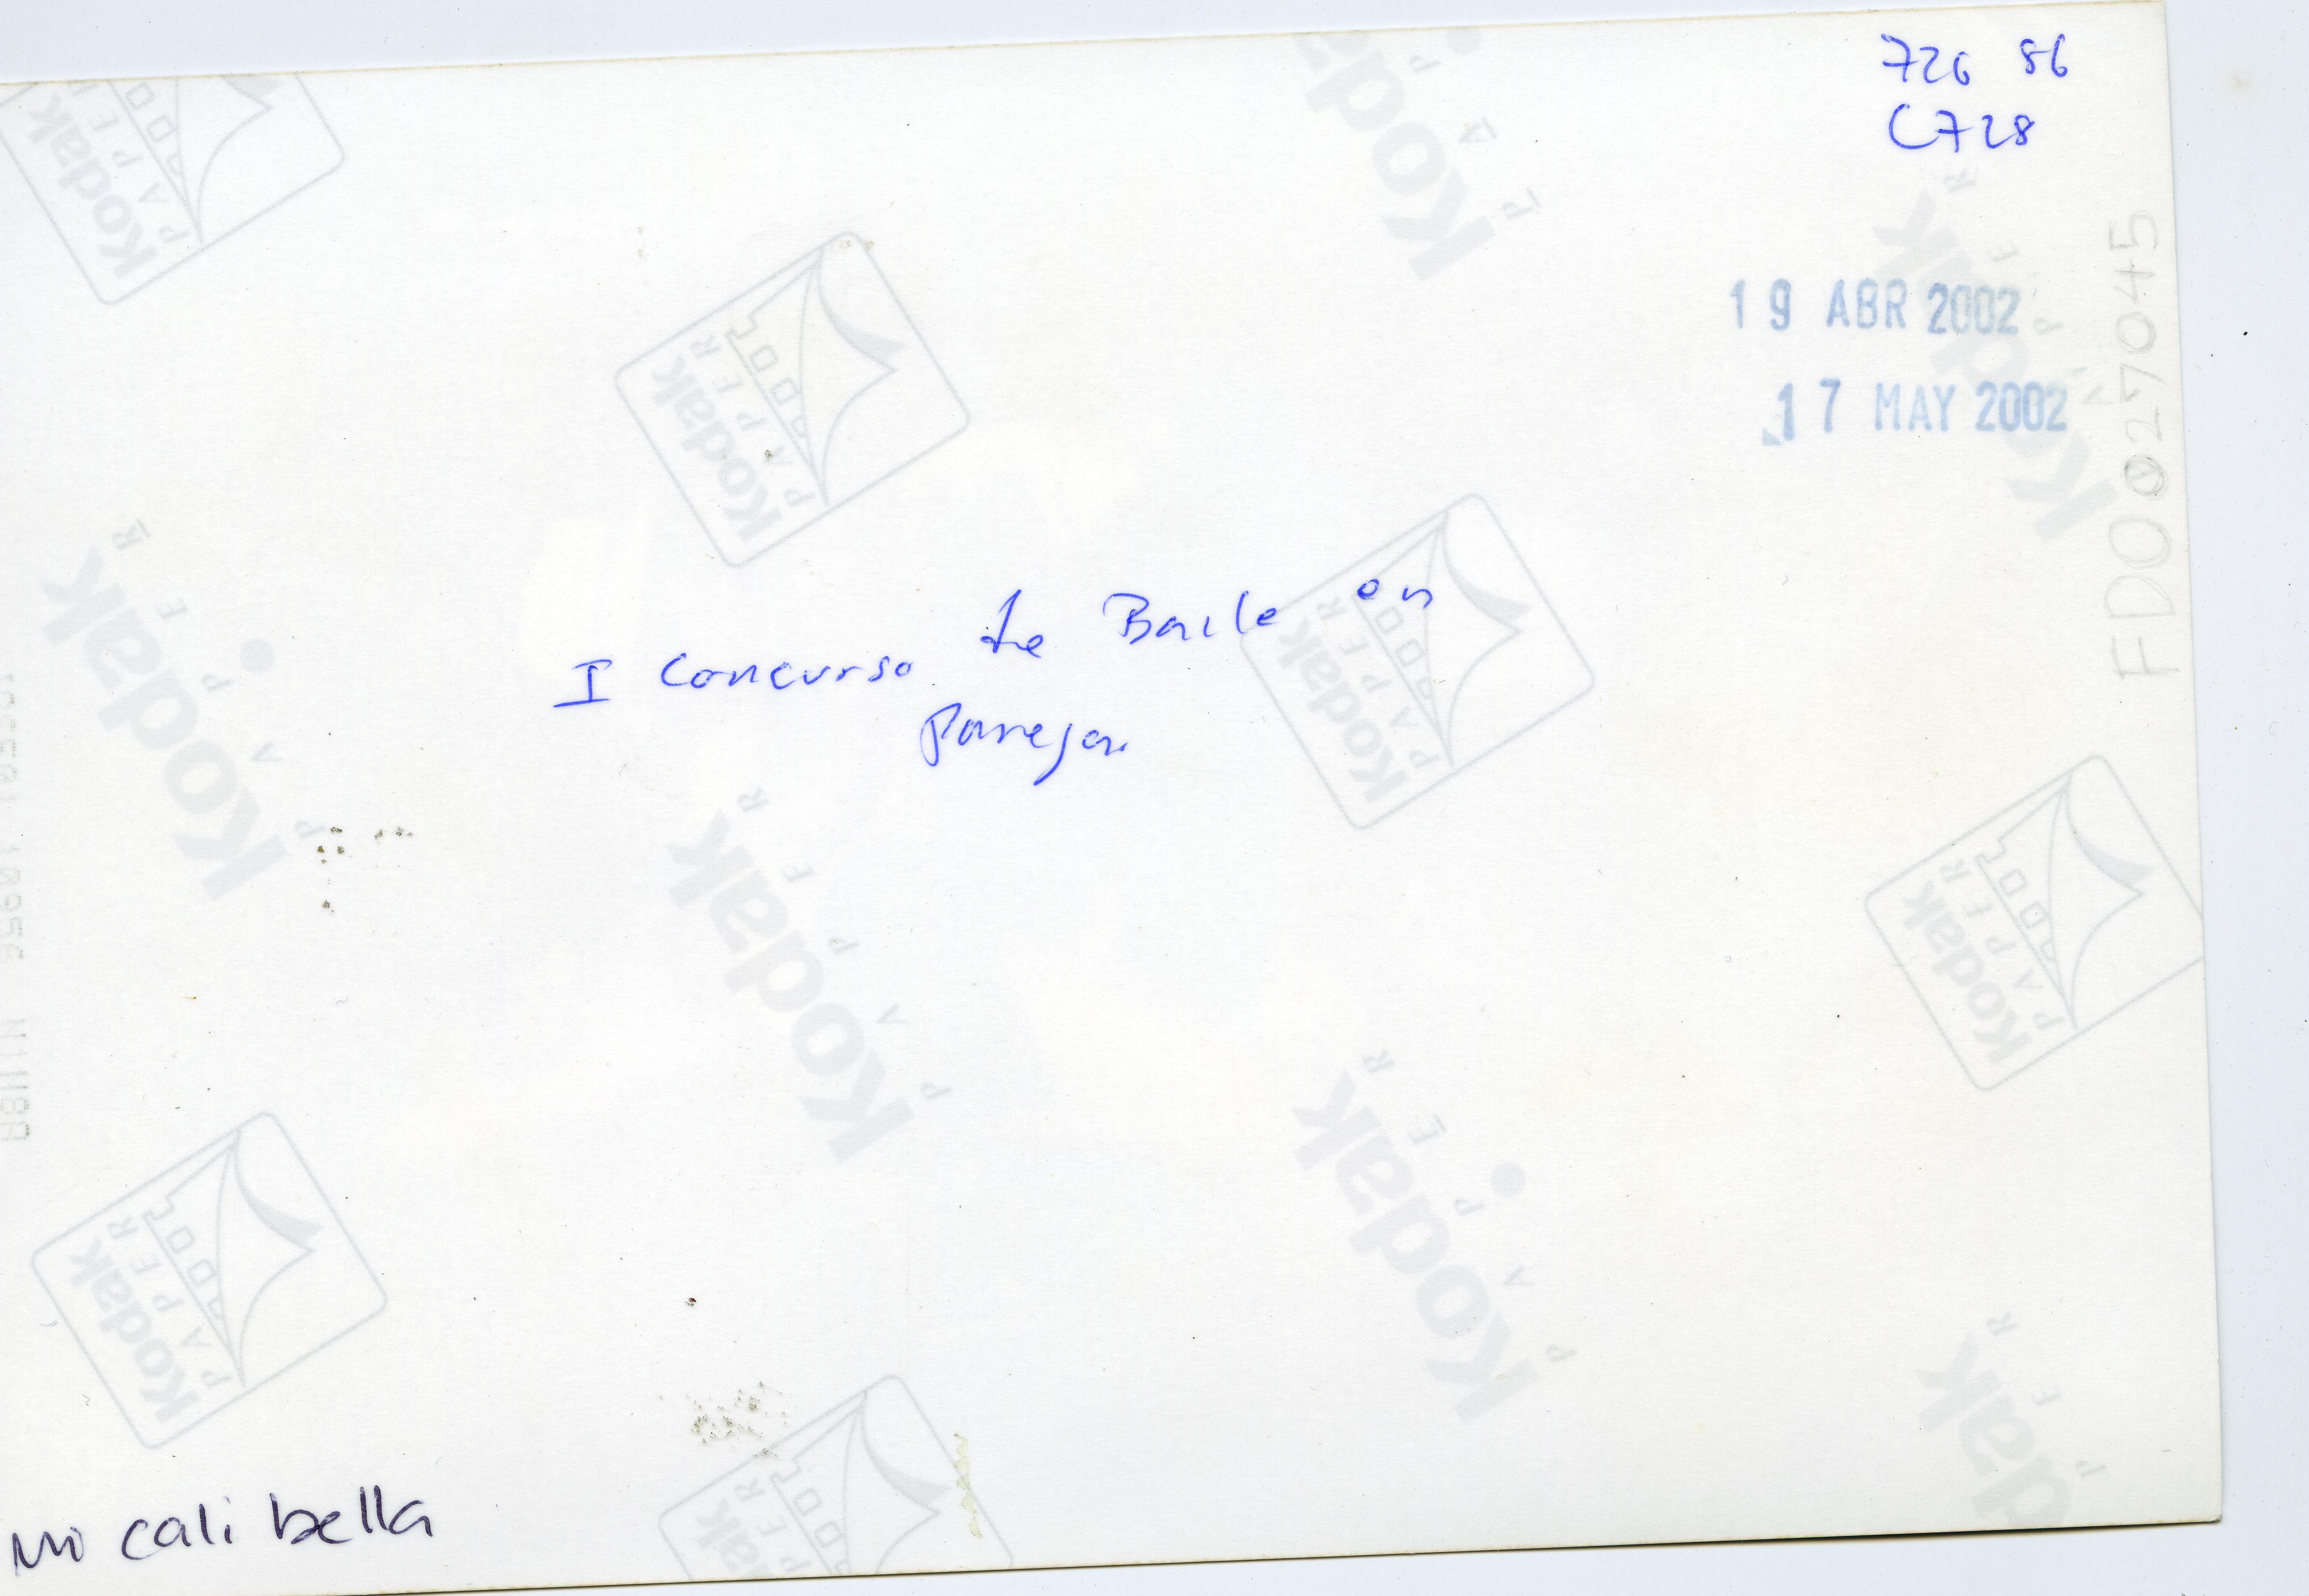 726 86
C728
19 ABR 2002
17 MAY 2002
FD0027045
I Concurso de Baile en
Parejas
Mi cali bella
Kodak
PAPER